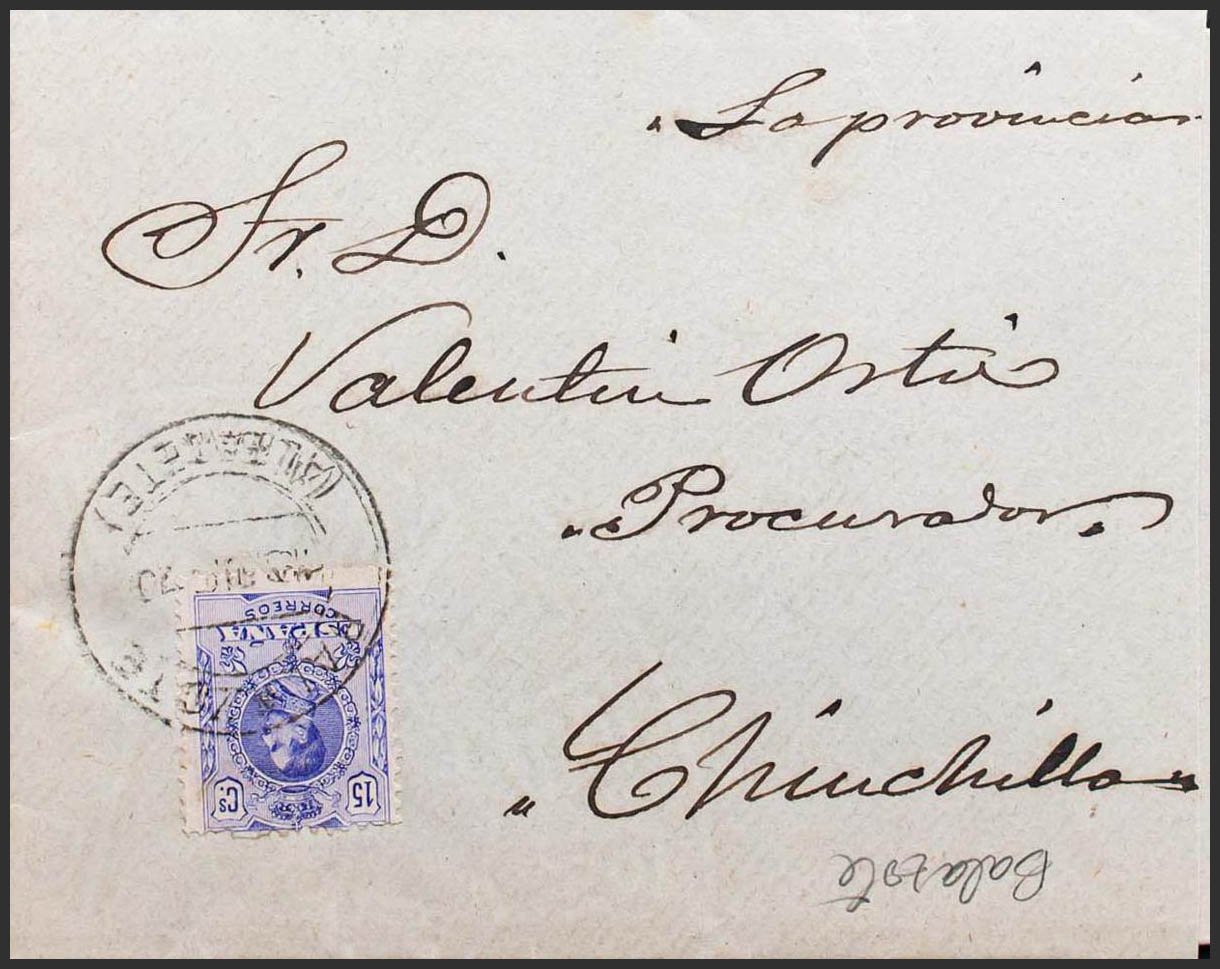 " La provincia "
Sr. D.
Valentin Ortiz
" Procurador "
" Chinchilla "
Balazote
(ALBACETE)
CORREOS
ESPAÑA
15 Cs